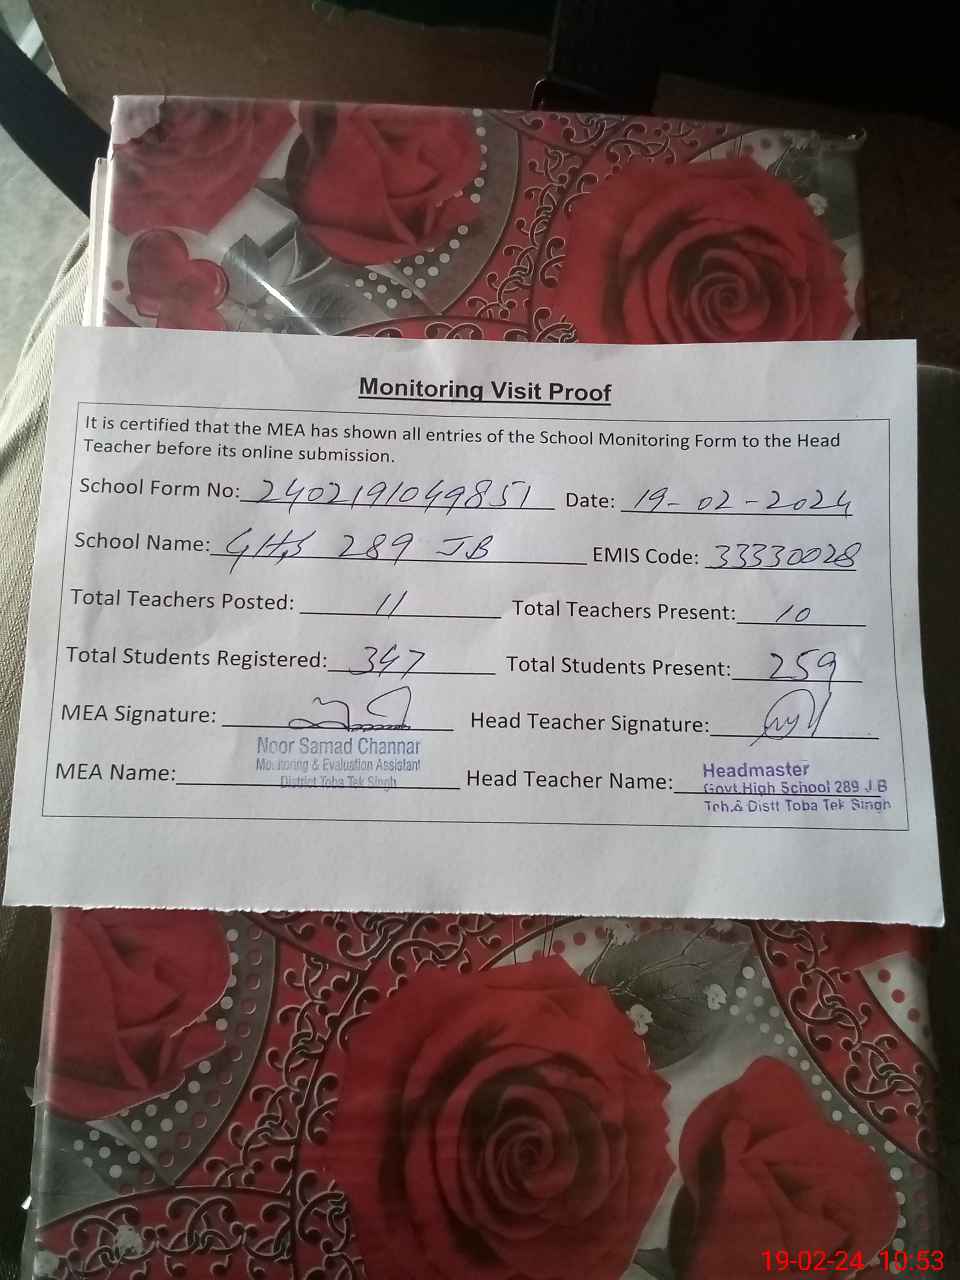 Monitoring Visit Proof
It is certified that the MEA has shown all entries of the School Monitoring Form to the Head
Teacher before its online submission.
School Form No: 2402191049851 Date: 19-02-2024
School Name: GHS 289 JB EMIS Code: 33330028
Total Teachers Posted: 11 Total Teachers Present: 10
Total Students Registered: 347 Total Students Present: 259
MEA Signature: Head Teacher Signature:
MEA Name: Noor Samad Channar
Monitoring & Evaluation Assistant
District Toba Tek Singh
Head Teacher Name: Headmaster
Govt.High School 289 J.B
Teh.& Distt Toba Tek Singh
19-02-24 10:53